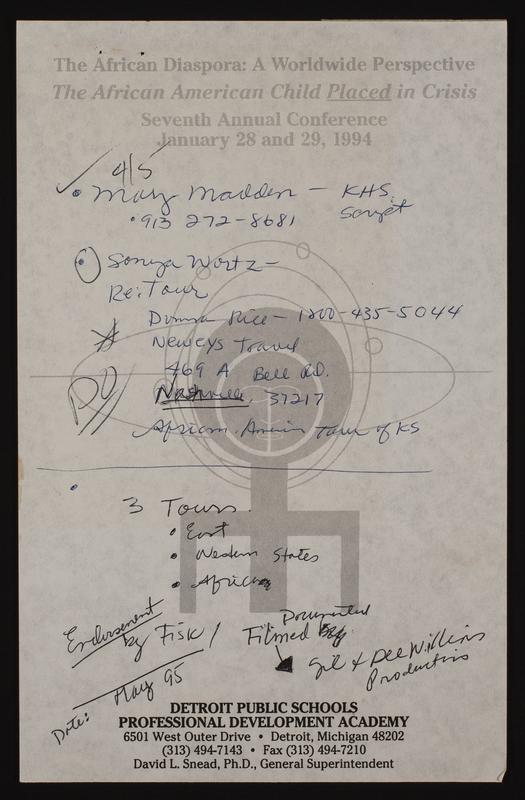 The African Diaspora: A Worldwide Perspective
The African American Child Placed in Crisis
Seventh Annual Conference
January 28 and 29, 1994
4/5
• Mary Madden – KHS
• 913 272-8681 script
• Sonya Wortz –
Re: Tour
Donna Rice – 1800-435-5044
Neweys Travel
469 A Bell RD.
DO
Nashville, 37217
African Amerin Tour of KS
3 Tours
• East
• Western States
• Africa
Endorsement
by Fisk /
Documented
Filmed By
Gil & Dee Willims
Productins
Date: May 95
DETROIT PUBLIC SCHOOLS
PROFESSIONAL DEVELOPMENT ACADEMY
6501 West Outer Drive • Detroit, Michigan 48202
(313) 494-7143 • Fax (313) 494-7210
David L. Snead, Ph.D., General Superintendent